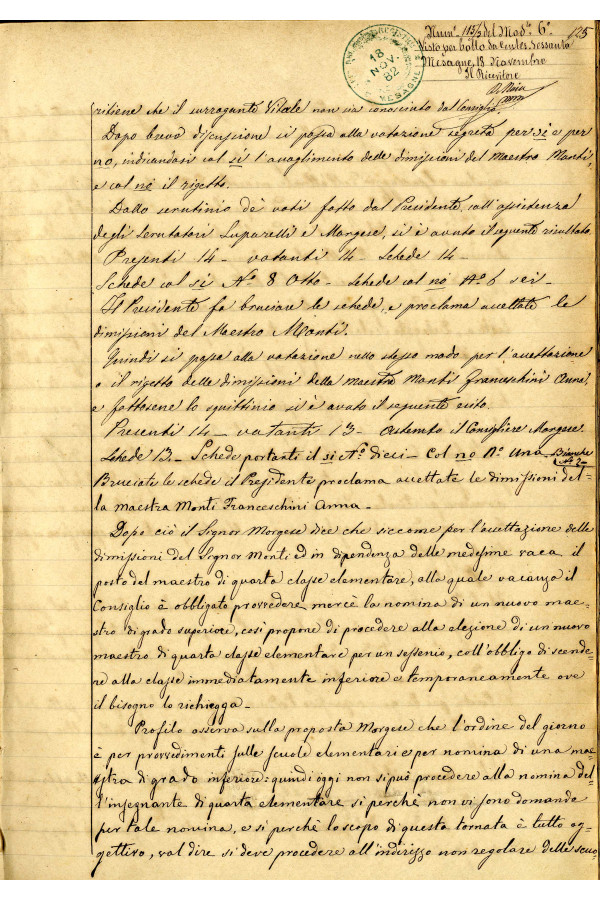 Num. 1153 del Mod. 6° 125
Visto per bollo da Cent. Sessanta
Mesagne, 18 Novembre
Il Ricevitore
18
NOV.
82
MESAGNE
ritiene che il surrogante Vitale non sia conosciuto dal Consiglio.
Dopo breve discussione si passa alla votazione segreta per si e per
no, indicandosi col si l'accoglimento delle dimissioni del Maestro Monti,
e col no il rigetto.
Dallo scrutinio de' voti fatto dal Presidente coll'assistenza
degli scrutatori Luparelli e Morgese, si è avuto il seguente risultato
Presenti 14 — votanti 14 — Schede 14 —
Schede col si N.° 8 Otto — schede col no N.° 6 sei —
Il Presidente fa bruciare le schede, e proclama accettate le
dimissioni del Maestro Monti.
Quindi si passa alla votazione nello stesso modo per l'accettazione
o il rigetto delle dimissioni della maestra Monti Franceschini Anna,
e fattosene lo squittinio si è avuto il seguente esito.
Presenti 14 — votanti 13 — Astenuto il Consigliere Morgese
Schede 13 — Schede portanti il si N.° dieci — Col no N.° una Bianche N.° 2 —
Bruciate le schede il Presidente proclama accettate le dimissioni del-
la maestra Monti Franceschini Anna —
Dopo ciò il Signor Morgese dice che siccome per l'accettazione delle
dimissioni del Signor Monti ed in dipendenza delle medesime vaca il
posto del maestro di quarta classe elementare, alla quale vacanza il
Consiglio è obbligato provvedere mercè la nomina di un nuovo mae-
stro di grado superiore, così propone di procedere alla elezione di un nuovo
maestro di quarta classe elementare per un sessenio, coll'obbligo di scende-
re alla classe immediatamente inferiore e temporaneamente ove
il bisogno lo richiegga —
Profilo osserva sulla proposta Morgese che l'ordine del giorno
è per provvedimenti sulle scuole elementari e per nomina di una mae-
stra di grado inferiore: quindi oggi non si può procedere alla nomina del-
l'insegnante di quarta elementare si perchè non vi sono domande
per tale nomina, e si perchè lo scopo di questa tornata è tutto og-
gettivo, val dire si deve procedere all'indirizzo non regolare delle scuo-